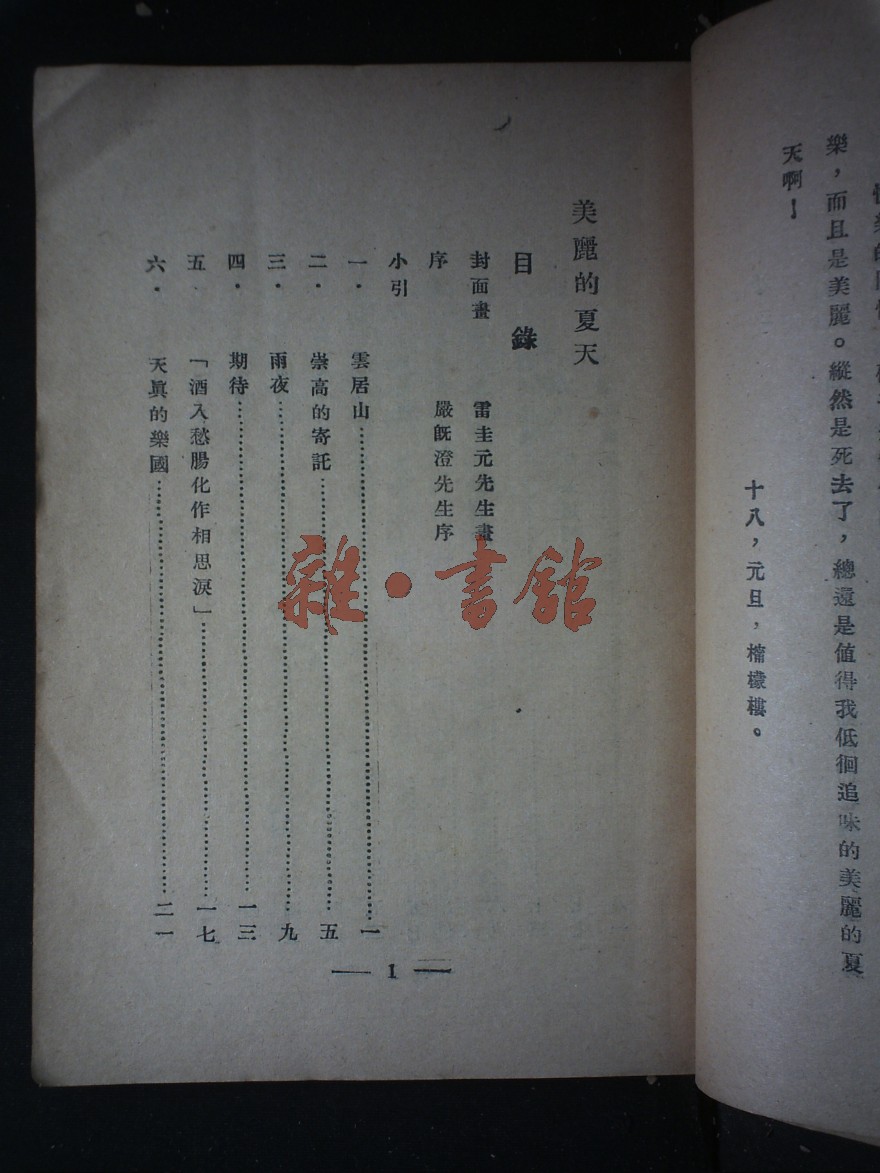 樂，而且是美麗。縱然是死去了，總還是值得我低徊追味的美麗的夏
天啊！
十八，元旦，檽檬樓。
美麗的夏天
目錄
封面畫 雷圭元先生畫
序 嚴旣澄先生序
小引
一． 雲居山…………一
二． 崇高的寄託…………五
三． 雨夜…………九
四． 期待…………一三
五 「酒入愁腸化作相思淚」…………一七
六． 天眞的樂國…………二一
— 1 —
雜·書館